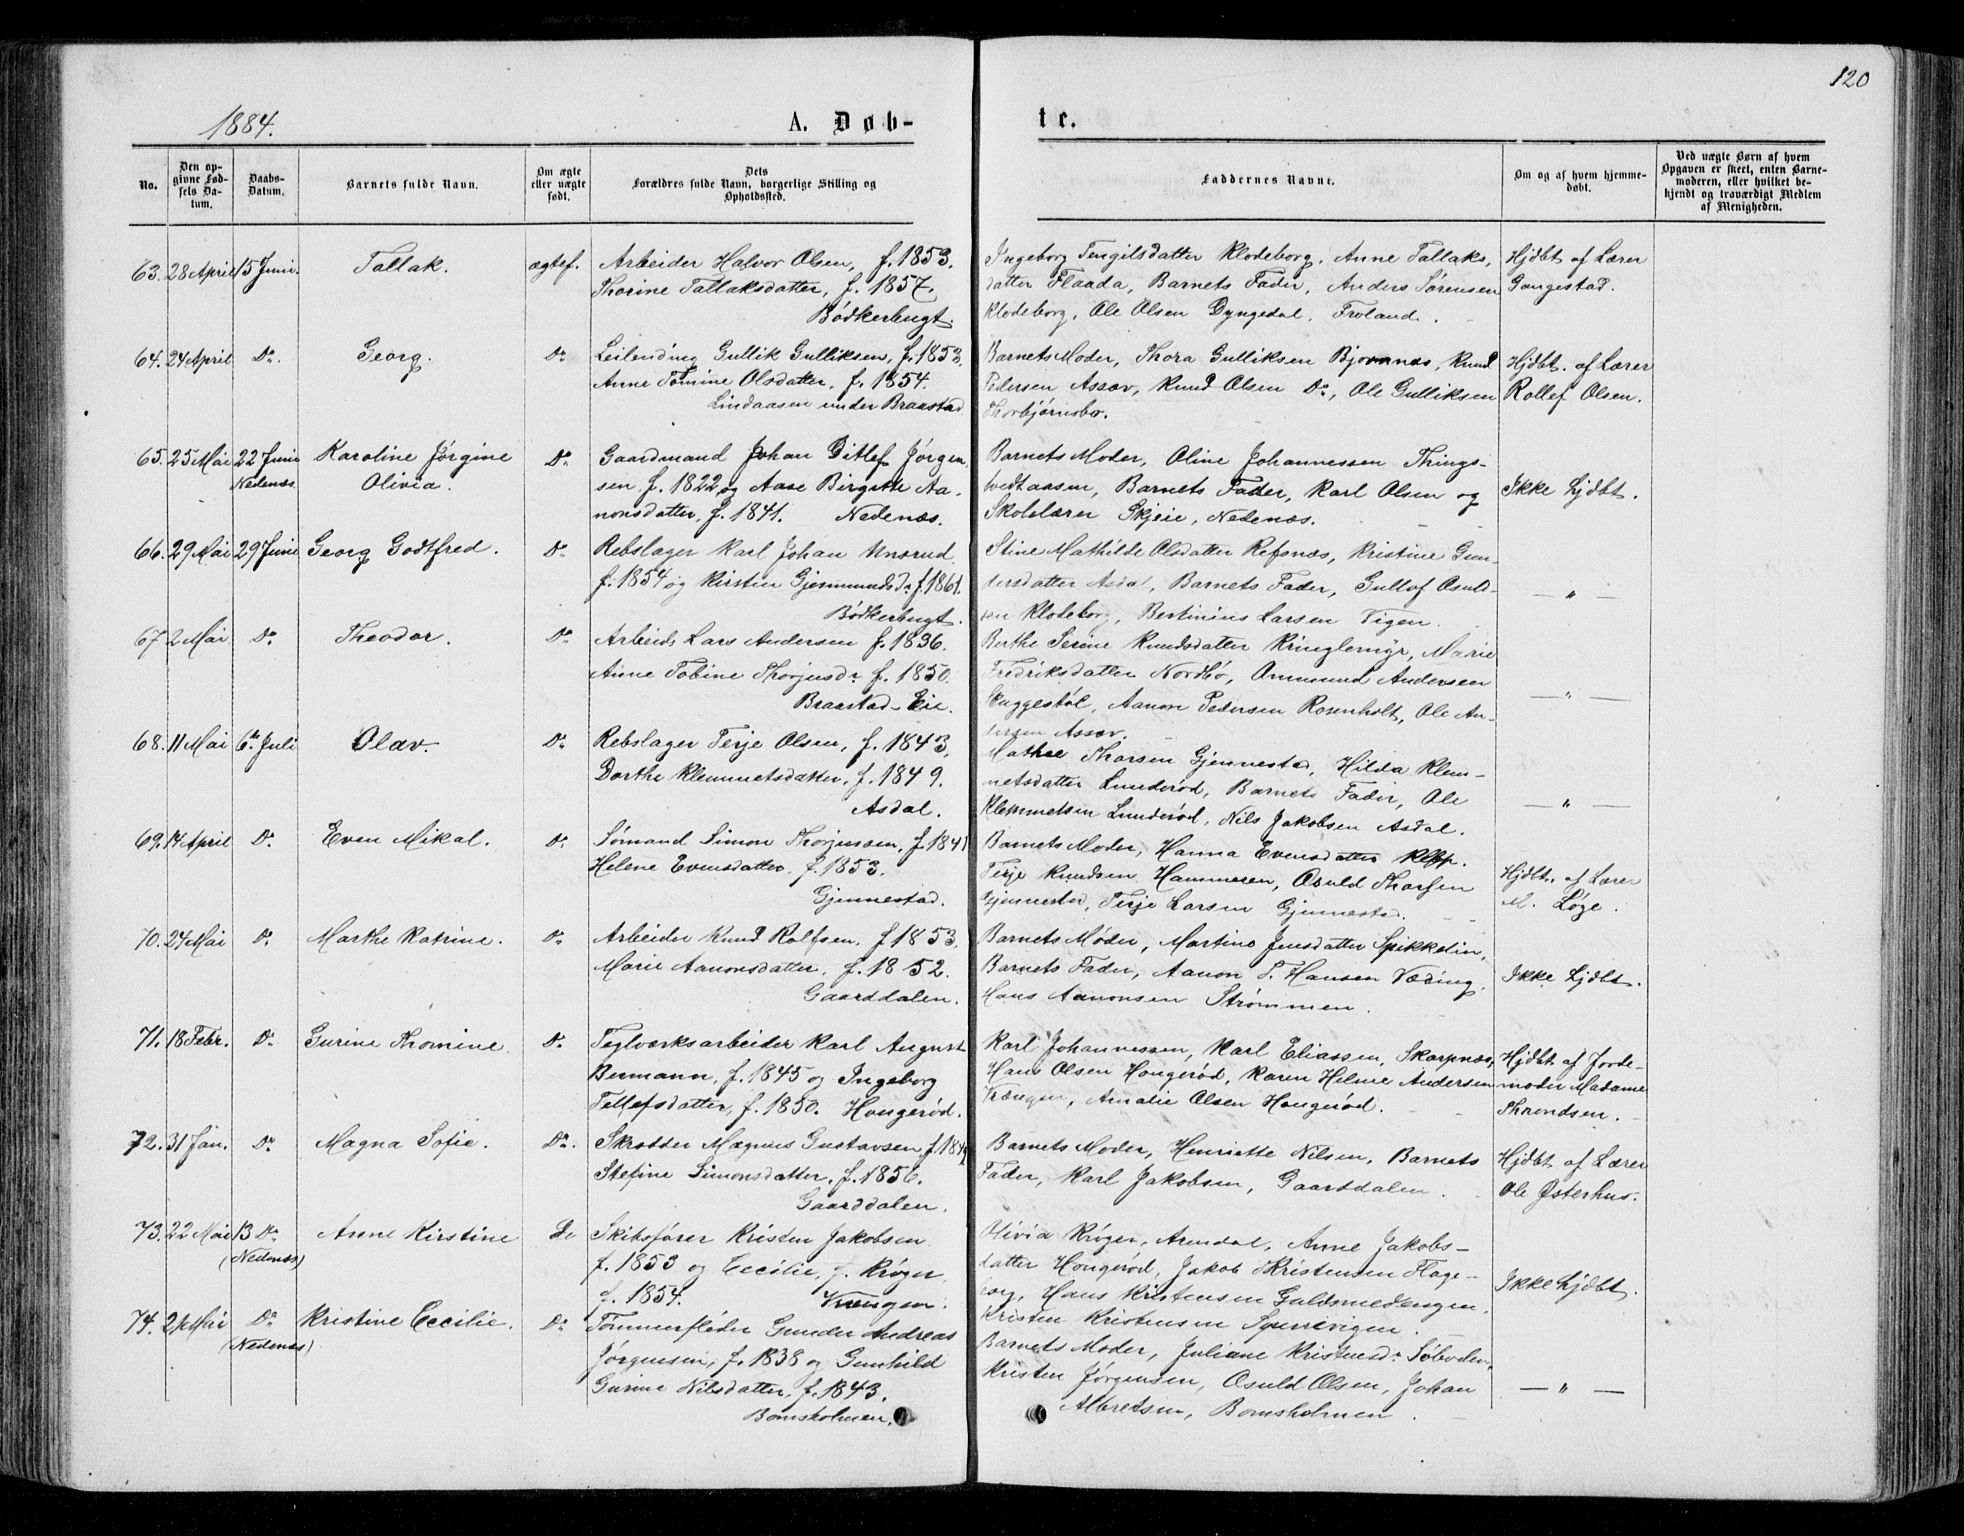 120
1884.
A. Døb-
te.
No.
Den op-
givne Fød-
sels Da-
tum.
Daabs-
Datum.
Barnets fulde Navn.
Om ægte
eller uægte
født.
Dets
Forældres fulde Navn, borgerlige Stilling og
Opholdssted.
Faddernes Navne.
Om og af hvem hjemme-
døbt.
Ved uægte Børn af hvem
Opgaven er skeet, enten Barne-
moderen, eller hvilket be-
kjendt og troværdigt Medlem
af Menigheden.
63. 28 April 15 Juni. Tallak. ægtef. Arbeider Halvor Olsen, f. 1853,
Thorine Tallaksdatter, f. 1857.
Bødkerbugt.
Ingeborg Tengilsdatter Klodeborg, Anne Tallaks,
datter Flaada, Barnets Fader, Anders Sørensen
Klodeborg, Ole Olsen Dyngedal, Froland.
Hjdbt af Lærer
Gongestad.
64. 24 April Do. Georg. Do Leilending Gullik Gulliksen, f. 1853.
Anne Tomine Olsdatter, f. 1854.
Lindaasen under Braastad
Barnets Moder, Thora Gulliksen Bjornnæs, Knud
Pedersen Assæv, Knud Olsen Do, Ole Gulliksen
Thorbjørnsbo.
Hjdbt. af Lærer
Rollef Olsen.
65. 25 Mai 22 Juni Karoline Jørgine Do Gaardmand Johan Ditlef Jørgen
Nedenæs. Olivia. sen, f. 1822, og Aase Birgitte Aa-
nonsdatter, f. 1841. Nedenæs.
Barnets Moder, Oline Johannessen Things-
tvedtaasen, Barnets Fader, Karl Olsen og
Skolelærer Skjeie, Nedenæs.
Ikke hjdbt.
66. 29 Mai 29 Juni Georg Godtfred. Do Rebslager Karl Johan Unærud
f. 1854 og Kirsten Gjermundsdr f. 1861.
Bødkerbugt.
Stine Mathilde Olsdatter Refsnæs, Kristine Gun-
dersdatter Asdal, Barnets Fader, Gullof Osuld-
sen Klodeborg, Bertinius Larsen Vigen.
— " —
67. 2 Mai Do. Theodor. Do Arbeid. Lars Andersen f. 1836.
Anne Tobine Thorjusdr f. 1850.
Braastad Eie.
Berthe Serine Knudsdatter Kringlemyr, Marie
Fredriksdatter Nordbø, Ommund Andersen
Skuggestøl, Aanon Pedersen Rosenholt, Ole An-
dersen Assæv.
— " —
68. 11 Mai 6te Juli Olav. Do Rebslager Terje Olsen, f. 1843,
Dorthe Klemmetsdatter, f. 1849.
Asdal.
Mathee Thorsen Gjennestad, Hilda Klem-
metsdatter Lunderød, Barnets Fader, Ole
Klemmetsen Lunderød, Nils Jakobsen Asdal.
— " —
69. 14 April Do. Even Mikal. Do Sømand Simon Thorjussen, f. 1841
Helene Evensdatter, f. 1853.
Gjennestad.
Barnets Moder, Hanna Evensdatter
Terje Knudsen Hammeren, Osuld Thorsen
Gjennestad, Terje Larsen Gjennestad.
Hjdbt. af Lærer
M. Løge.
70. 24 Mai Do Marthe Katrine. Do Arbeider Knud Rolfsen, f. 1853.
Marie Aanonsdatter, f. 1852.
Gaarddalen.
Barnets Moder, Martine Jensdatter Spikkelin,
Barnets Fader, Aanon T. Hansen Væding,
Hans Aanonsen Strømmen.
Ikke hjdbt.
71. 18 Febr. Do Gurine Thomine. Do Teglværksarbeider Karl August
Bermann, f. 1845 og Ingeborg
Tellefsdatter, f. 1850. Hongerød.
Karl Johannessen, Karl Eliassen, Skarpnæs,
Hans Olsen Hongerød, Karen Helene Andersen
Vrængen, Amalie Olsen Hongerød.
Hjdbt af Jorde-
moder Madame
Throndsen.
72. 31 Jan. Do Magna Sofie. Do. Skrædder Magnus Gustavsen, f. 184
Stefine Simonsdatter, f. 1856.
Gaarddalen.
Barnets Moder, Henriette Nilsen, Barnets
Fader, Karl Jakobsen, Gaarddalen.
Hjdbt af Lærer
Ole Østerhus.
73. 22 Mai 13 Do Anne Kirstine Do Skibsfører Kristen Jakobsen
(Nedenæs) f. 1853 og Cecilie, f. Krøger
f. 1854. Vrengen.
Olivia Krøger, Arendal, Anne Jakobs-
datter Hongerød, Jakob Kristensen Flage-
borg, Hans Kristensen Guldsmedengen,
Kristen Kristensen Spærrevigen.
Ikke hjdbt.
74. 21 Mai Do Kristine Cecilie. Do Tømmerfløder Gunder Andreas
(Nedenæs) Jørgensen, f. 1838 og Gunhild
Gurine Nilsdatter, f. 1843.
Bomsholmen.
Barnets Moder, Juliane Kristensdr Søboden,
Kristen Jørgensen, Osuld Olsen, Johan
Albretsen, Bomsholmen.
— " —